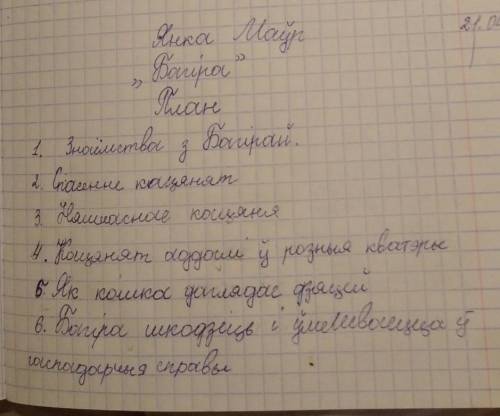 Янка Маўр 21.04
„Багіра”
План
1. Знаёмства з Багірай.
2. Спасенне кацянят
3. Няшчаснае кацяня
4. Кацянят аддалі ў розныя кватэры
5. Як кошка даглядае дзяцей
6. Багіра шкодзіць і ўмешваецца ў
гаспадарчыя справы